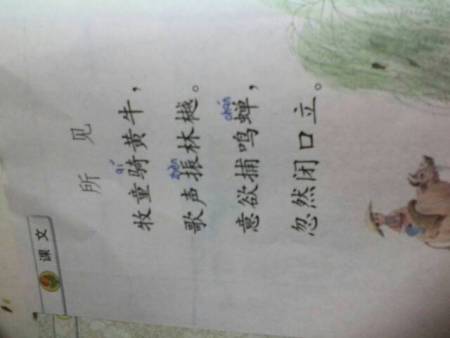 课文
所见
qí
牧童骑黄牛，
zhèn
歌声振林樾。
chán
意欲捕鸣蝉，
忽然闭口立。